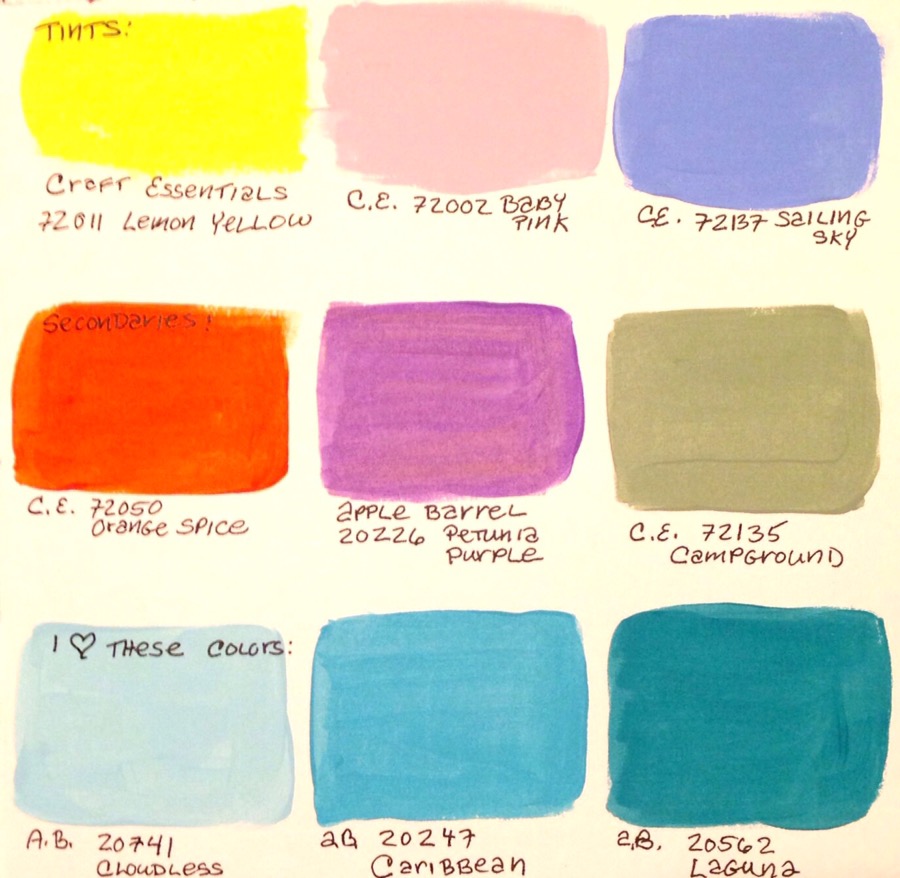 TINTS:
Craft Essentials
72011 Lemon Yellow
C.E. 72002 Baby
Pink
C.E. 72137 Sailing
Sky
Secondaries:
C.E. 72050
Orange Spice
Apple Barrel
20226 Petunia
Purple
C.E. 72135
Campground
I ♡ These Colors:
A.B. 20741
Cloudless
aB 20247
Caribbean
a.B. 20562
Laguna